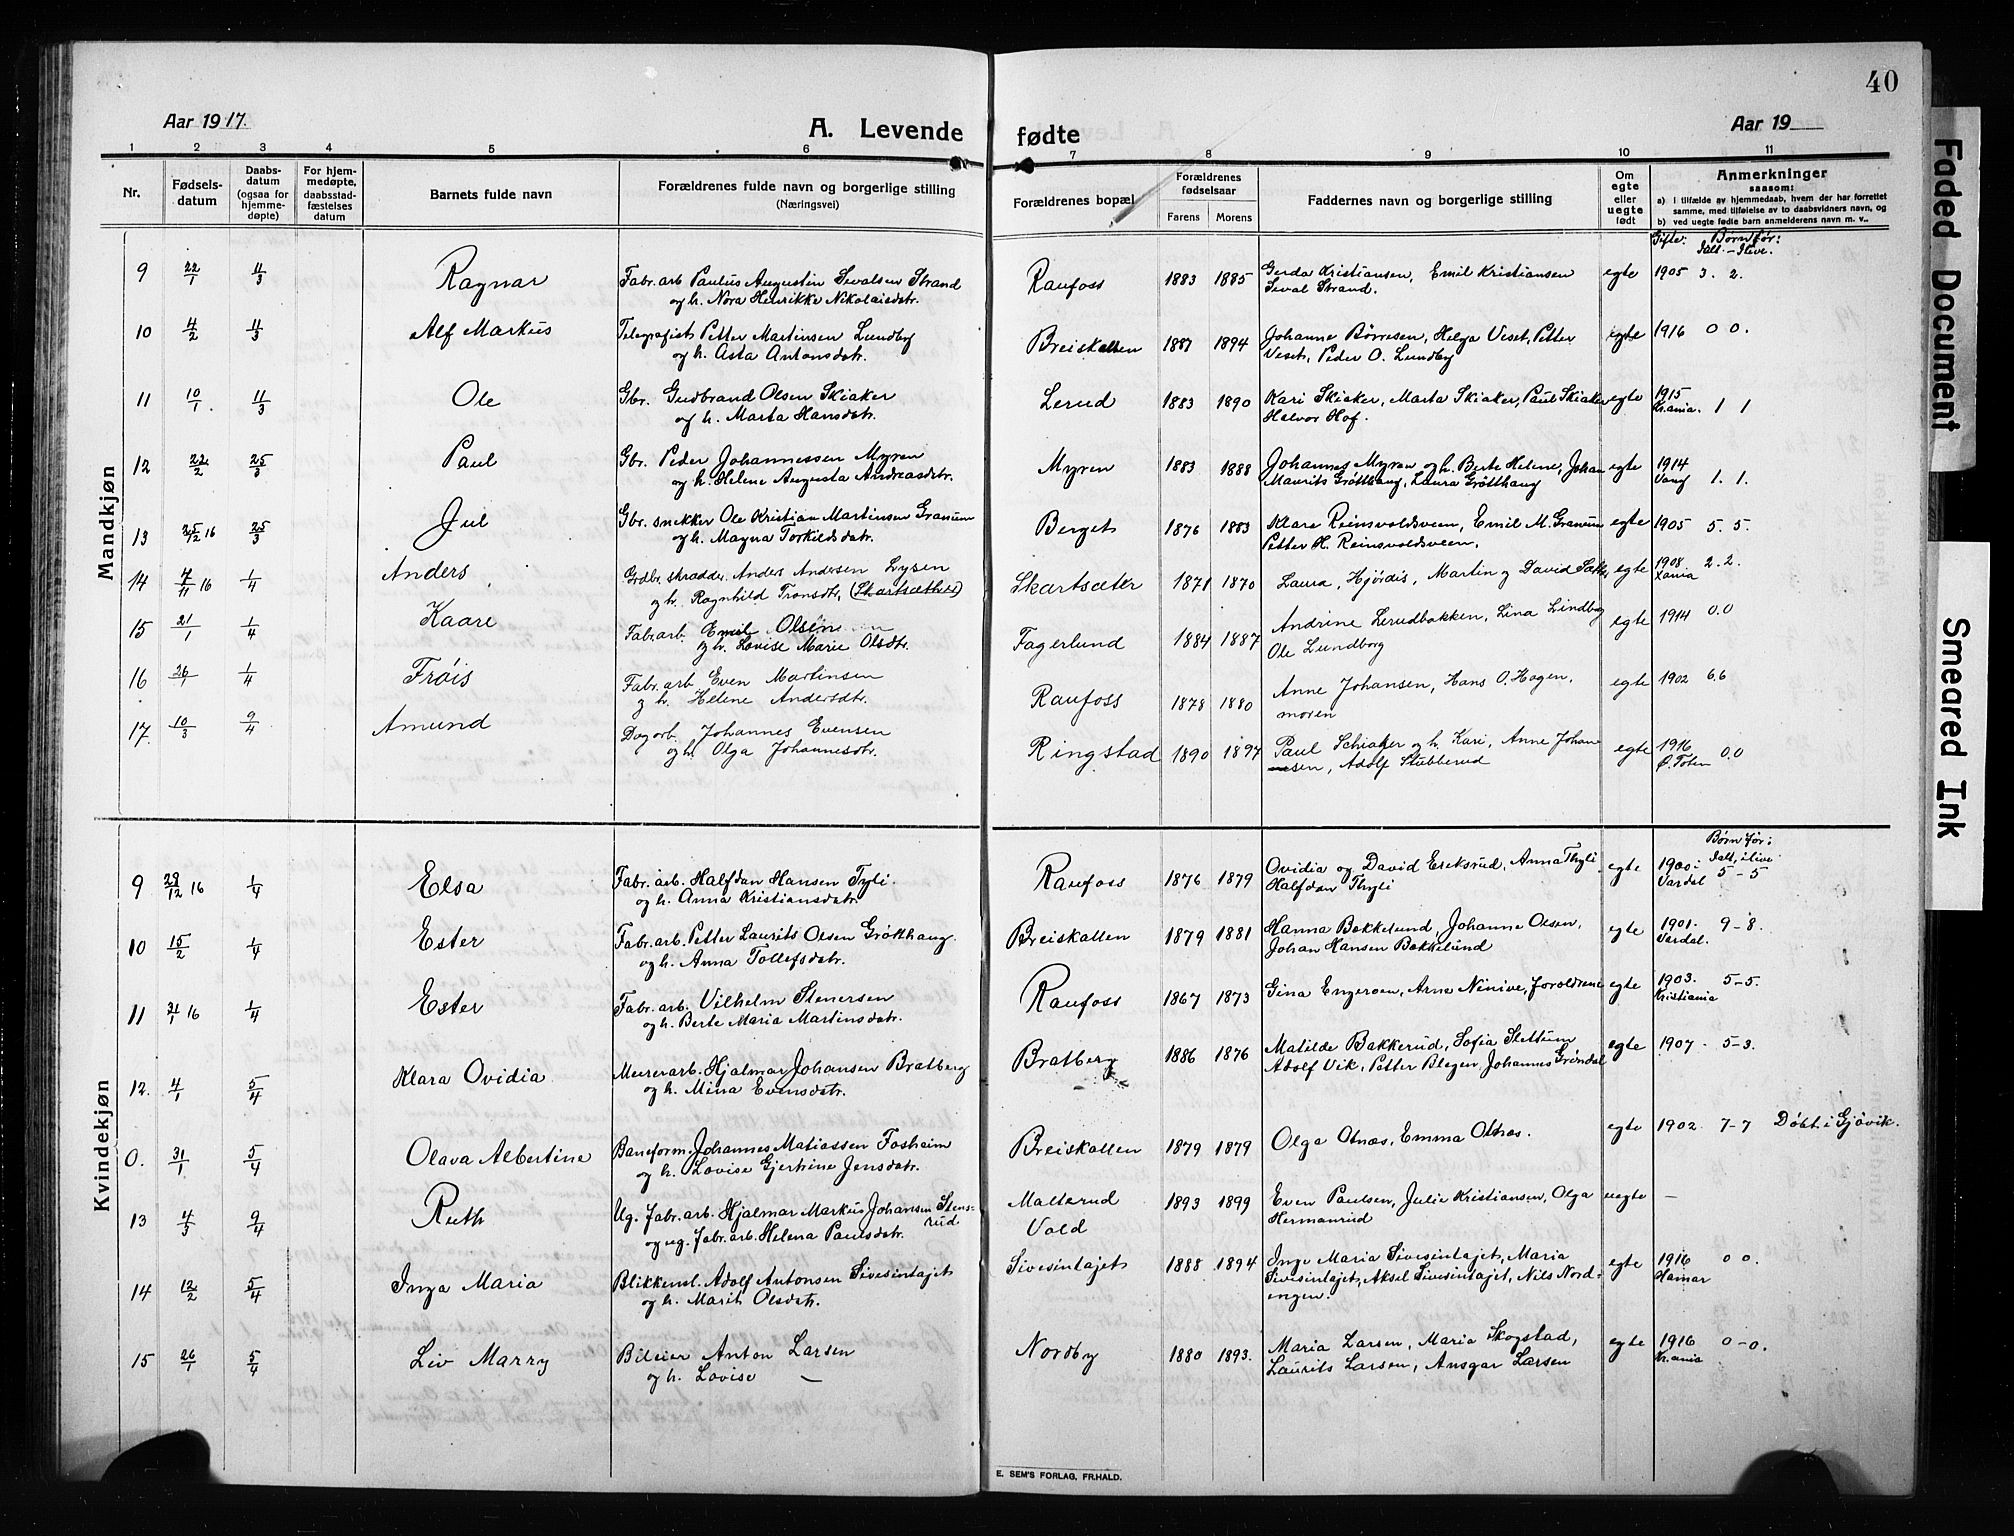 40
Aar 1917.
A. Levende fødte
Aar 19
1 2 3 4 5 6 7 8 9 10 11
Nr.
Fødsels-
datum
Daabs-
datum
(ogsaa for
hjemme-
døpte)
For hjem-
medøpte,
daabsstad-
fæstelses
datum
Barnets fulde navn
Forældrenes fulde navn og borgerlige stilling
(Næringsvei)
Forældrenes bopæl
Forældrenes
fødselsaar
Farens Morens
Faddernes navn og borgerlige stilling
Om
egte
eller
uegte
født
Anmerkninger
saasom:
a) i tilfælde av hjemmedaab, hvem der har forrettet
samme, med tilføielse av to daabsvidners navn, og
b) ved uegte fødte barn anmelderens navn m. v..
Gifte: Børn før:
Ialt. – Ilive.
Mandkjøn
9 22/1 11/3 Ragnar Fabr. arb. Paulus Augustin Sivalsen Strand Raufoss 1883 1885 Gerda Kristiansen, Emil Kristiansen egte 1905 3. 2.
og h. Nora Henrikke Nikolaisdtr. Sival Strand.
10 4/2 11/3 Alf Markus Telegrafist Petter Martinsen Lundby Breiskallen 1887 1894 Johanne Børresen, Helga Veset, Petter egte 1916 0 0.
og h. Asta Antonsdtr. Veset, Peder O. Lundby
11 10/1 11/3 Ole Gbr. Gudbrand Olsen Skiaker Lerud 1883 1890 Kari Skiaker, Marta Skiaker, Paul Skiaker egte 1915
og h. Marta Hansdtr. Halvor Hof. Kr.ania. 1 1
12 22/2 25/3 Paul Gbr. Peder Johannessen Myren Myren 1883 1888 Johannes Myren og h. Berte Helene, Johan egte 1914
og h. Helene Augusta Andreasdtr. Maurits Grøtthaug, Laura Grøtthaug Vang 1. 1.
13 25/12 16 25/3 Jul Gbr. snekker Ole Kristian Martinsen Granum Berget 1876 1883 Klara Reinsvoldsveen, Emil M. Granum egte 1905 5. 5.
og h. Magna Torkildsdtr. Petter H. Reinsvoldsveen.
14 7/11 16 1/4 Anders Grdbr. skrædder Anders Andersen Lysen Skartsæter 1871 1870 Laura, Hjørdis, Martin og David Sæther egte 1908 2. 2.
og h. Ragnhild Tronsdtr. (Skartsæther) Xania
15 21/1 1/4 Kaare Fabr. arb. Emil Olsen Fagerlund 1884 1887 Andrine Lerudbakken, Lina Lindbog egte 1914 0.0
og h. Lovise Marie Olsdtr. Ole Lundborg
16 26/1 1/4 Frøis Fabr. arb. Even Martinsen Raufoss 1878 1880 Anne Johansen, Hans O. Hagen, egte 1902 6.6
og h. Helene Andersdtr. moren
17. 10/3 9/4 Amund Dagarb. Johannes Evensen Ringstad 1890 1897 Paul Schiaker og h. Kari, Anne Johan egte 1916
og h. Olga Johannesdtr. nsen, Adolf Stubberud Ø. Toten 0.0
Kvindekjøn
Børn før:
Ialt, ilive
9 29/12 16 1/4 Elsa Fabr. arb. Halfdan Hansen Tyli. Raufoss 1876 1879 Ovidia og David Eriksrud, Anna Thyli egte 1900 i
og h. Anna Kristiansdtr. Halfdan Thyli Vardal 5 – 5
10 15/2 1/4 Ester Fabr. arb. Petter Laurits Olsen Grøtthaug. Breiskallen 1879 1881 Hanna Bakkelund, Johanne Olsen, egte 1901. 9 – 8.
og h. Anna Tollefsdtr. Johan Hansen Bakkelund Vardal.
11 31/1 16 1/4 Ester Fabr. arb. Vilhelm Stenersen Raufoss 1867 1873 Gina Engeroen, Arne Ninive, foreldrene egte 1903. 5 – 5.
og h. Berte Maria Martinsdtr. Kristiania
12. 4/1 5/4 Klara Ovidia Murerarb. Hjalmar Johansen Bratberg Bratberg 1886 1876 Matilde Bakkerud, Sofia Slettum egte 1907 5 – 3.
og h. Mina Evensdtr. Adolf Vik, Petter Blegen, Johannes Grøndal
0. 31/1 5/4 Olava Albertine Baneform. Johannes Matiassen Fosheim Breiskallen 1879 1879 Olga Otnæs, Emma Otnæs. egte 1902 7 – 7 Døbt i Gjøvik.
og h. Lovise Gjertine Jensdtr.
13 4/3 9/4 Ruth Ug. fabr. arb. Hjalmar Markus Johansen Stens- Malterud 1893 1899 Even Paulsen, Julie Kristiansen, Olga uegte –
rud og ug. fabr. arb. Helena Paulsdtr. Vald Hermanrud
14 12/2 5/4 Inga Maria Blikkensl. Adolf Antonsen Sivesintajet Sivesintajet 1888 1894 Inga Maria Sivesintajet, Maria egte 1916 0 0.
og h. Marit Olsdtr. Sivesintajet, Aksel Sivesintajet, Nils Nord- Hamar
engen.
15 26/1 5/4 Liv Marry Bileier Anton Larsen Nordby 1880 1893. Maria Larsen, Maria Skogstad, egte 1916 0 – 0.
og h. Lovise — Laurits Larsen, Ansgar Larsen Kr.ania
E. SEM'S FORLAG, FR.HALD.
Faded Document
Smeared Ink